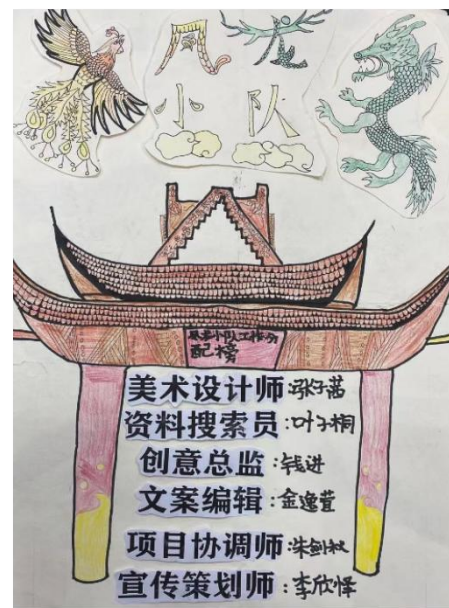 凤龙
小队
凤龙小队工作分
配榜
美术设计师:张子菡
资料搜索员:叶子桐
创意总监:钱进
文案编辑:金逸萱
项目协调师:朱剑秋
宣传策划师:李欣怿